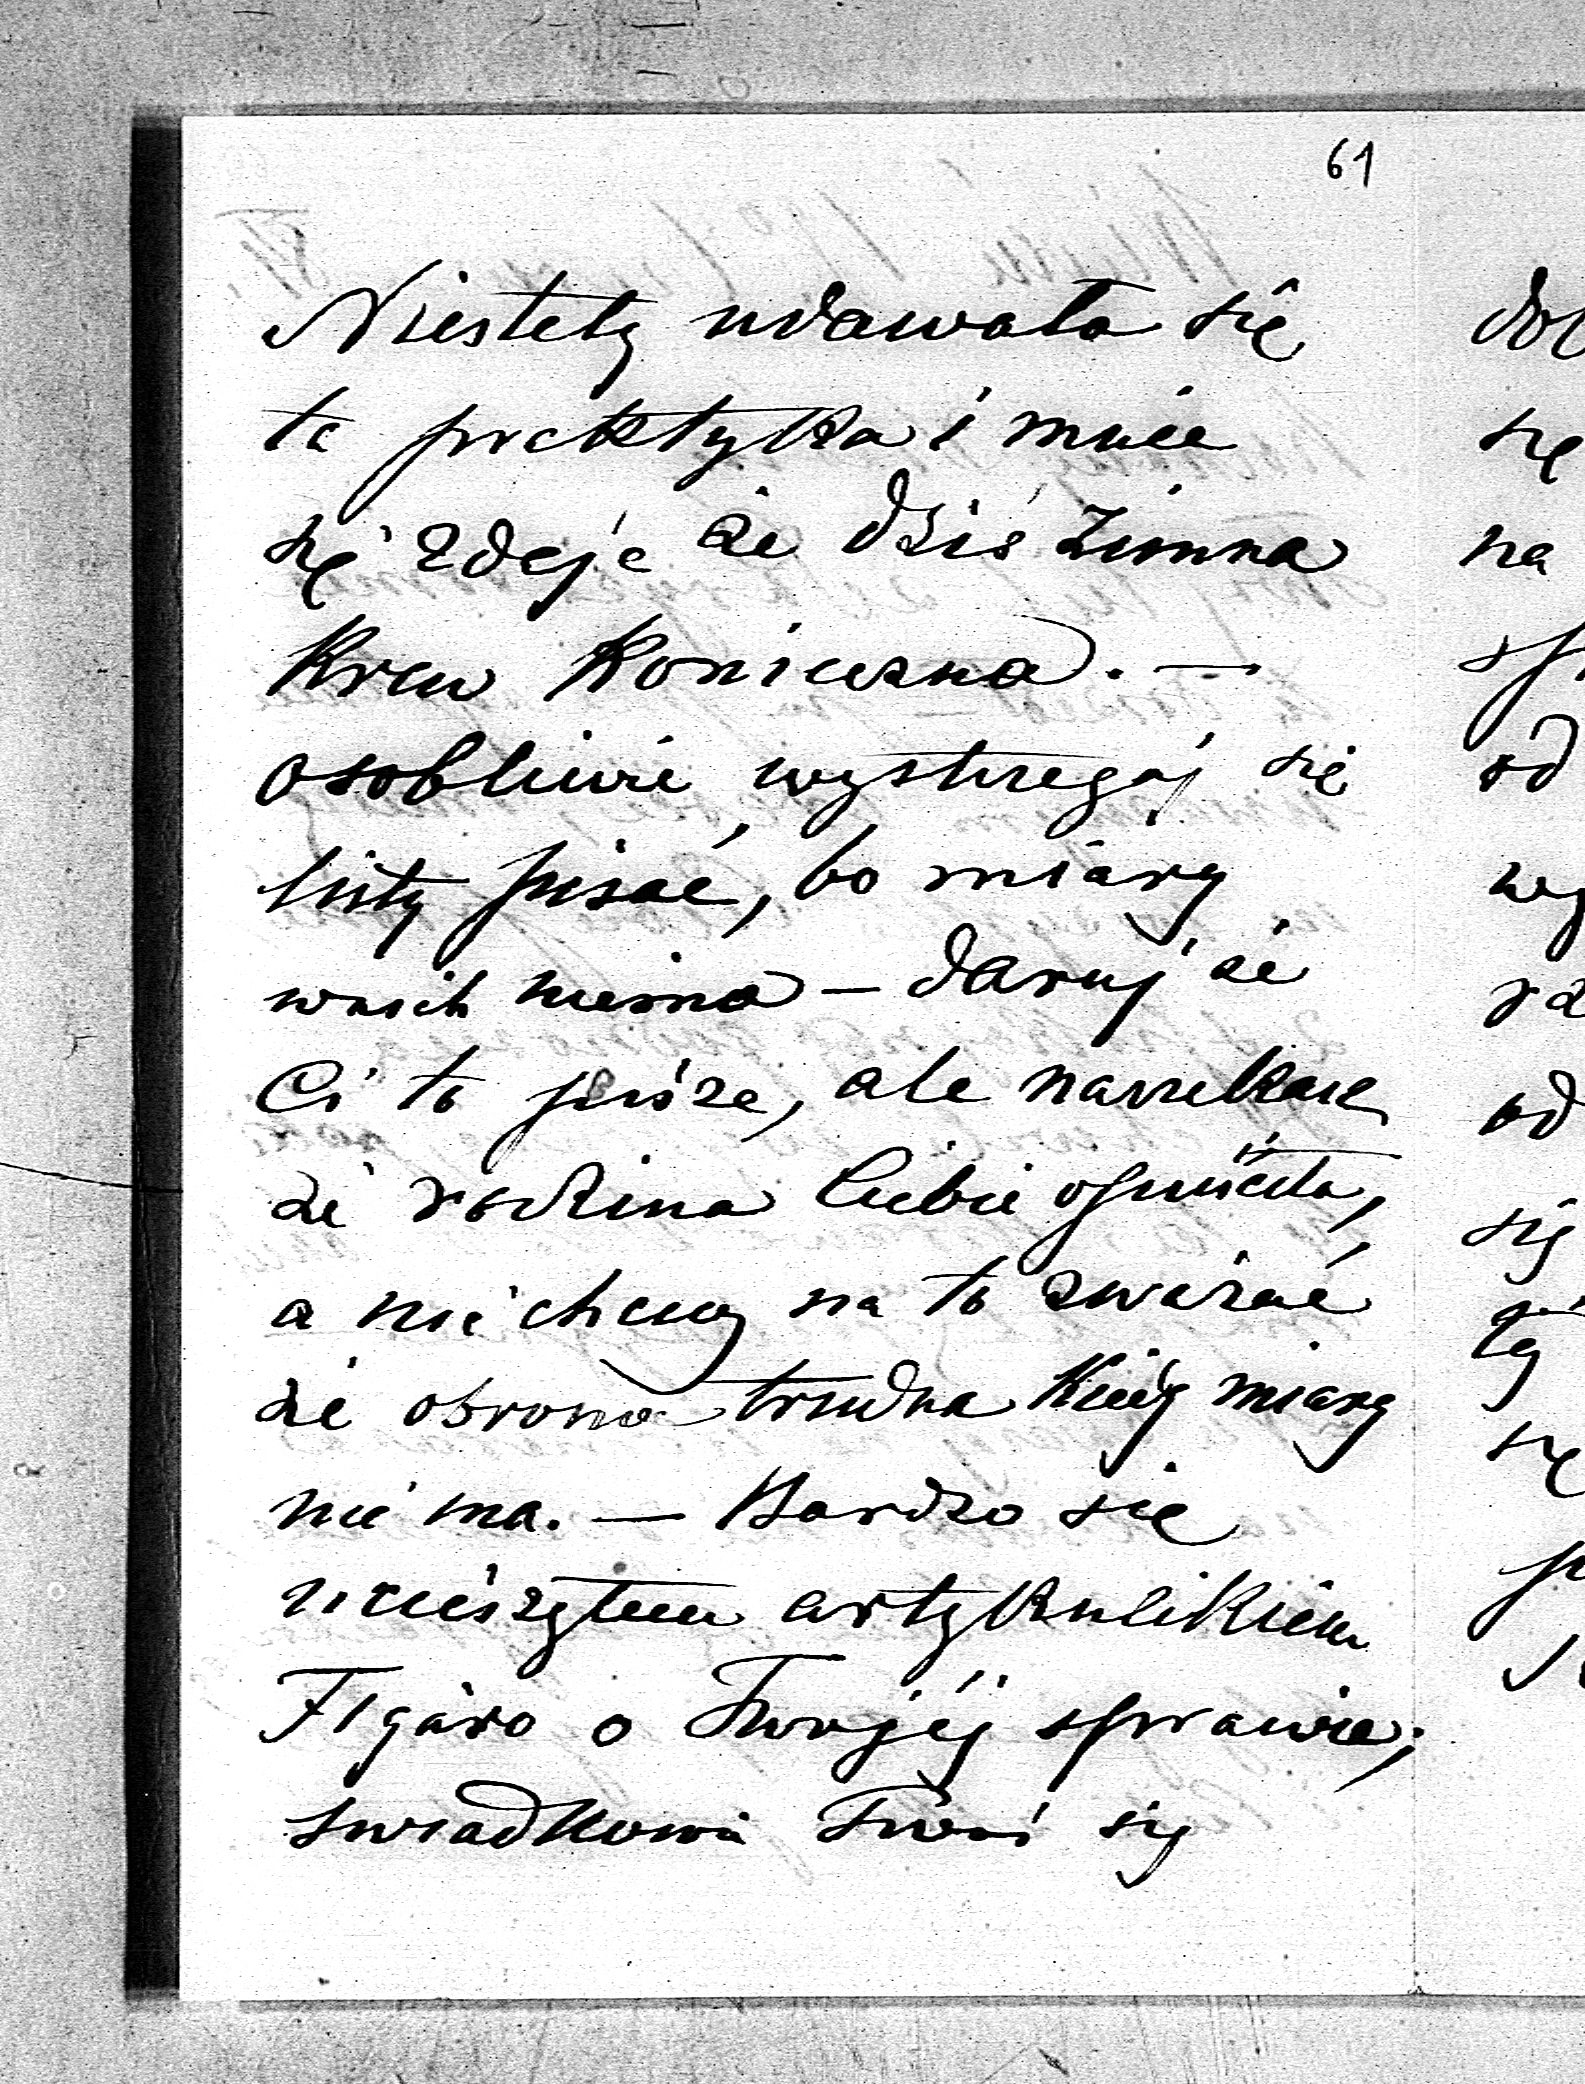 61
Niestety udawała się
ta praktyka i mnie
się zdaje że dziś zimna
krew konieczna. —
osobliwie wystrzegaj się
listy pisać, bo miary
w nich niema — daruj że
Ci to piszę, ale narzekasz
że rodzina Ciebie opuściła,
a nie chcesz na to zważać
że obrona trudna kiedy miary
nie ma. — Bardzo się
ucieszyłem artykulikiem
Figaro o Twojéj sprawie;
swiadkowie Twoi są